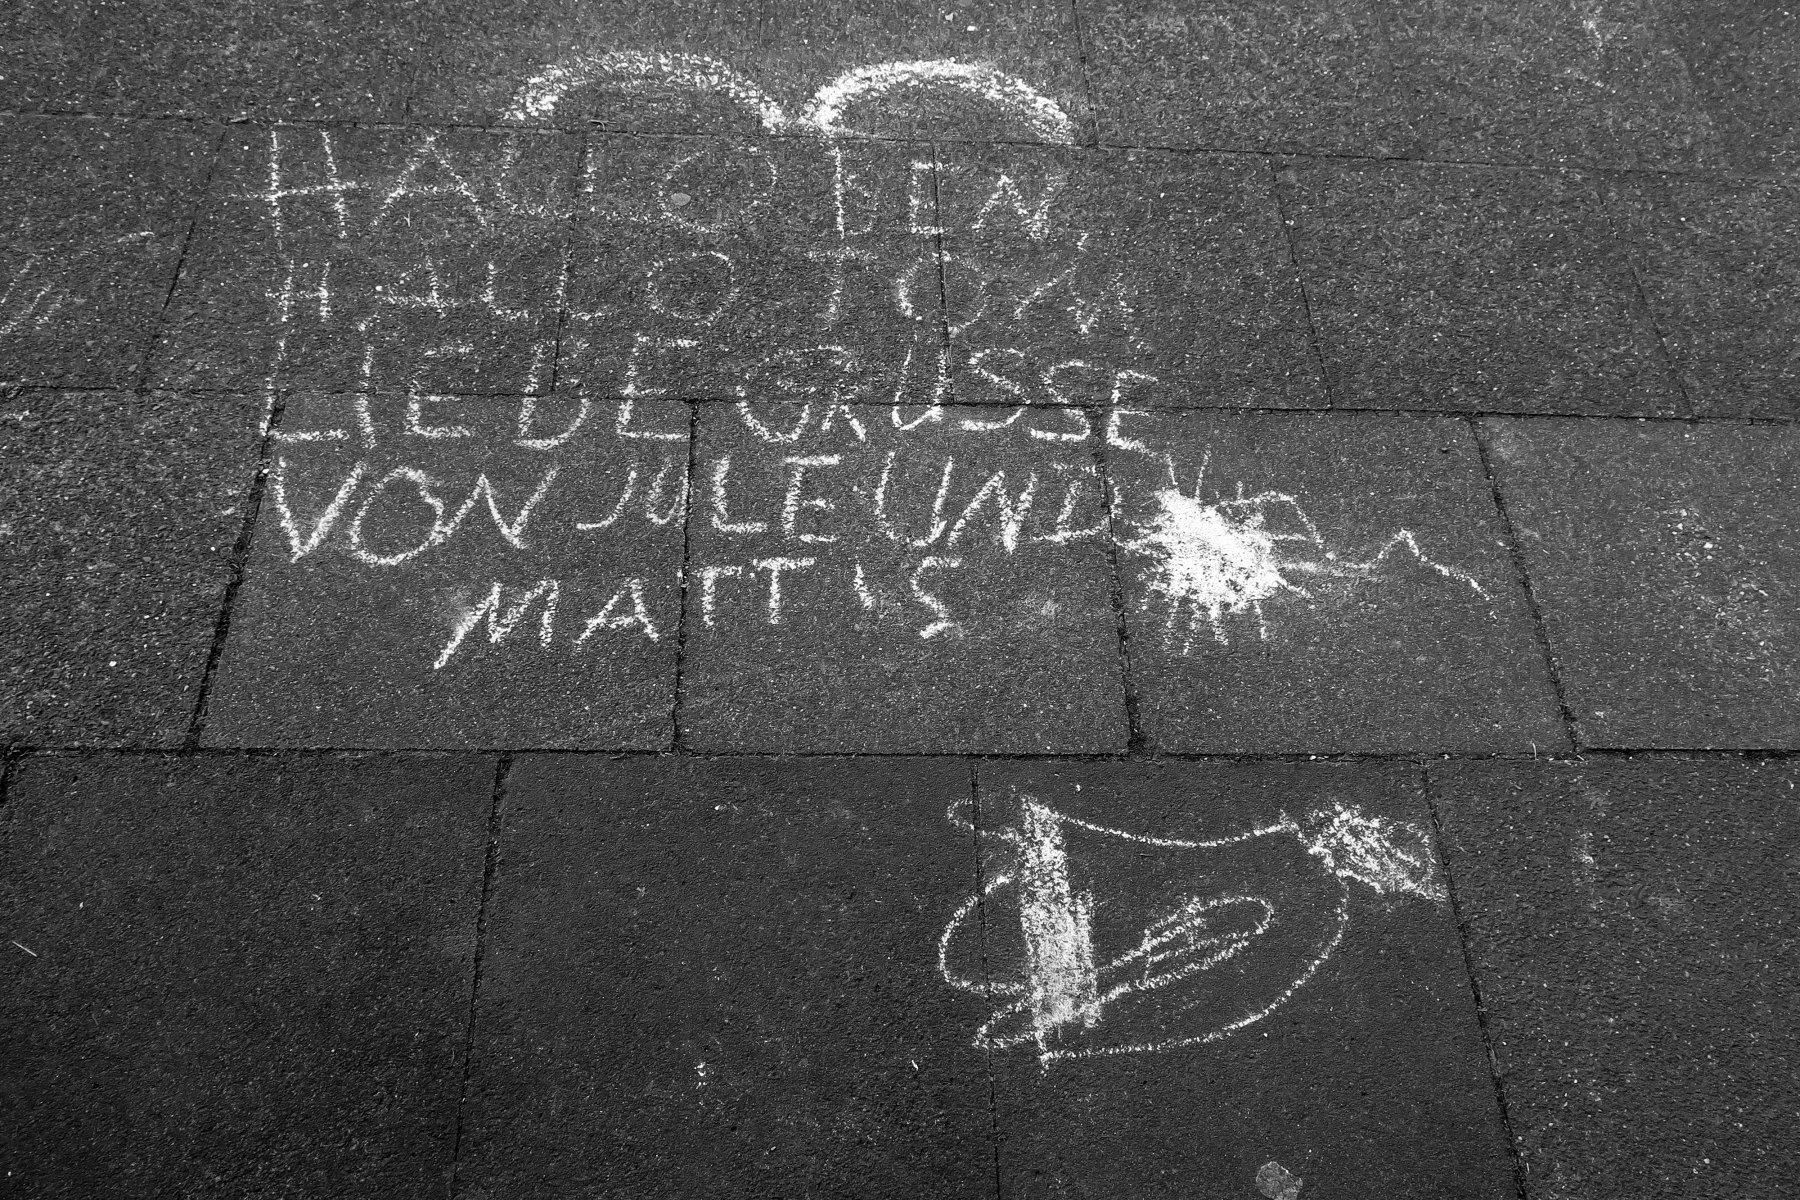 HALLO BEN,
HALLO TOM
LIEBE GRÜSSE
VON JULE UND
MATT'S